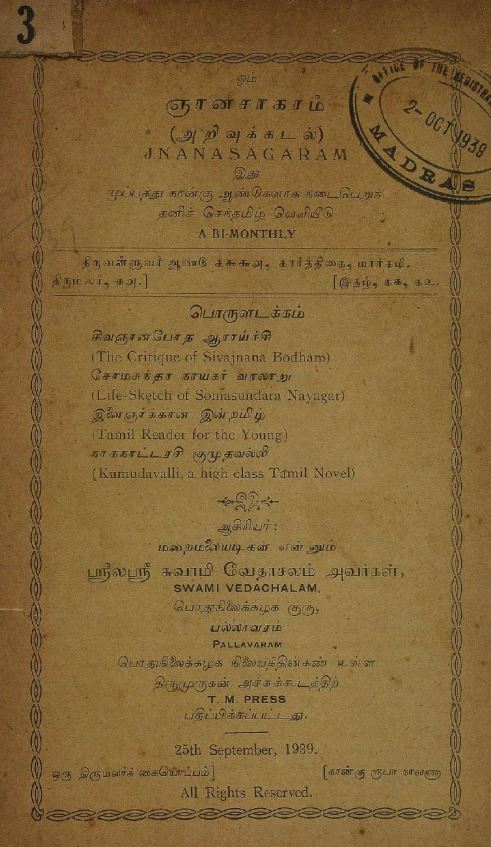 3
OFFICE OF THE REGISTRAR
2-OCT 1939
MADRAS
ஓம்
ஞானசாகரம்
(அறிவுக்கடல்)
JNANASAGARAM
இது
முப்பத்து நான்கு ஆண்டுகளாக நடைபெறும்
தனிச் செந்தமிழ் வெளியீடு
A BI-MONTHLY
திருவள்ளுவர் ஆண்டு கார்த்திகை, மார்கழி.
திருமலர், கஅ.] [இதழ், கக, க௨.
பொருளடக்கம்
சிவஞானபோத ஆராய்ச்சி
(The Critique of Sivajnana Bodham)
சோமசுந்தர நாயகர் வரலாறு
(Life-Sketch of Somasundara Nayagar)
இளைஞர்க்கான இன்றமிழ்
(Tamil Reader for the Young)
நாகநாட்டரசி குமுதவல்லி
(Kumudavalli, a high class Tamil Novel)
ஆசிரியர்:
மறைமலையடிகள் என்னும்
ஸ்ரீலஸ்ரீ சுவாமி வேதாசலம் அவர்கள்,
SWAMI VEDACHALAM,
பொதுநிலைக்கழக குரு,
பல்லாவரம்
PALLAVARAM
பொதுநிலைக்கழக நிலையத்தின்கண் உள்ள
திருமுருகன் அச்சுக்கூடத்திற்
T. M. PRESS
பதிப்பிக்கப்பட்டது.
25th September, 1939.
ஒரு திருமலர்க் கையொப்பம்] [நான்கு ரூபா நாலணா
All Rights Reserved.